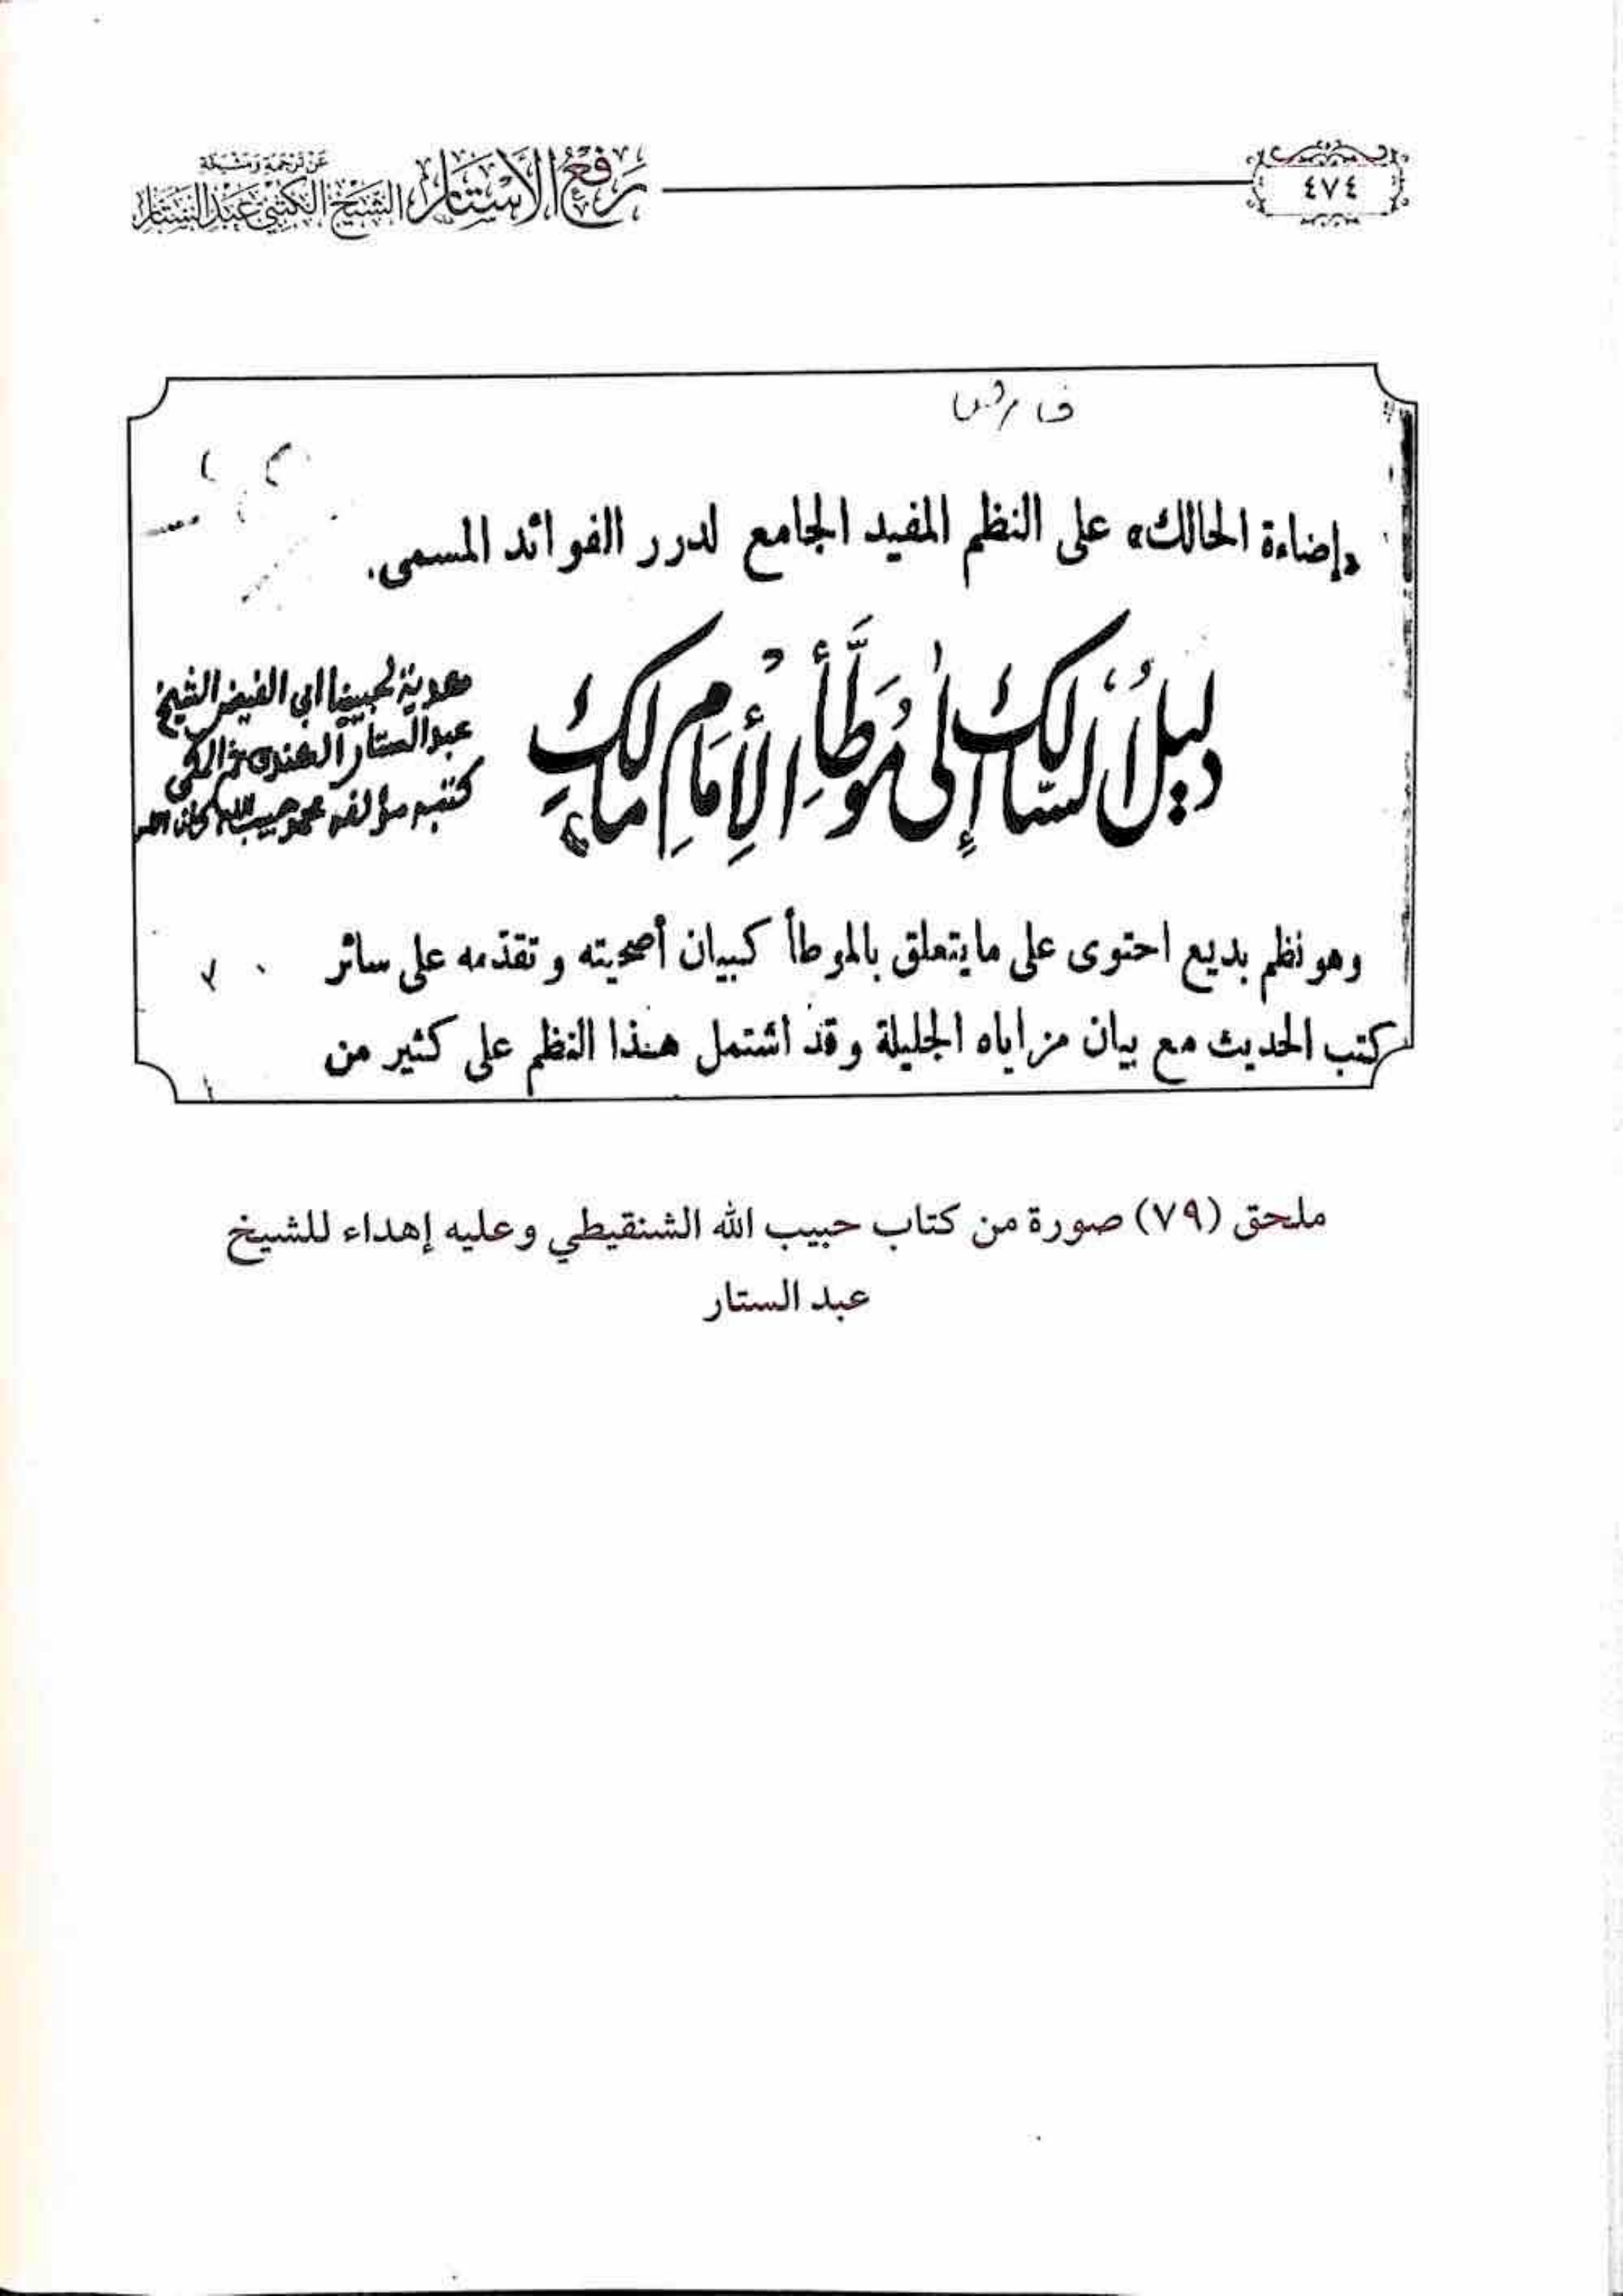 ٤٧٤
رفع الأستار عن ترجمة ومشيخة الشيخ الكتبي عبد الستار
«إضاءة الحالك» على النظم المفيد الجامع لدرر الفوائد المسمى.
دَلِيلُ السَّالِكِ إِلَى مُوَطَّأِ الْإِمَامِ مَالِكٍ
هدية لحبيبنا ابي الفيض الشيخ
عبد الستار الهندي ثم المكي
كتبه مؤلفه محمد حبيب الله
وهو نظم بديع احتوى على ما يتعلق بالموطأ كبيان أصحيته وتقدّمه على سائر
كتب الحديث مع بيان مزاياه الجليلة وقد اشتمل هذا النظم على كثير من
ملحق (٧٩) صورة من كتاب حبيب الله الشنقيطي وعليه إهداء للشيخ
عبد الستار